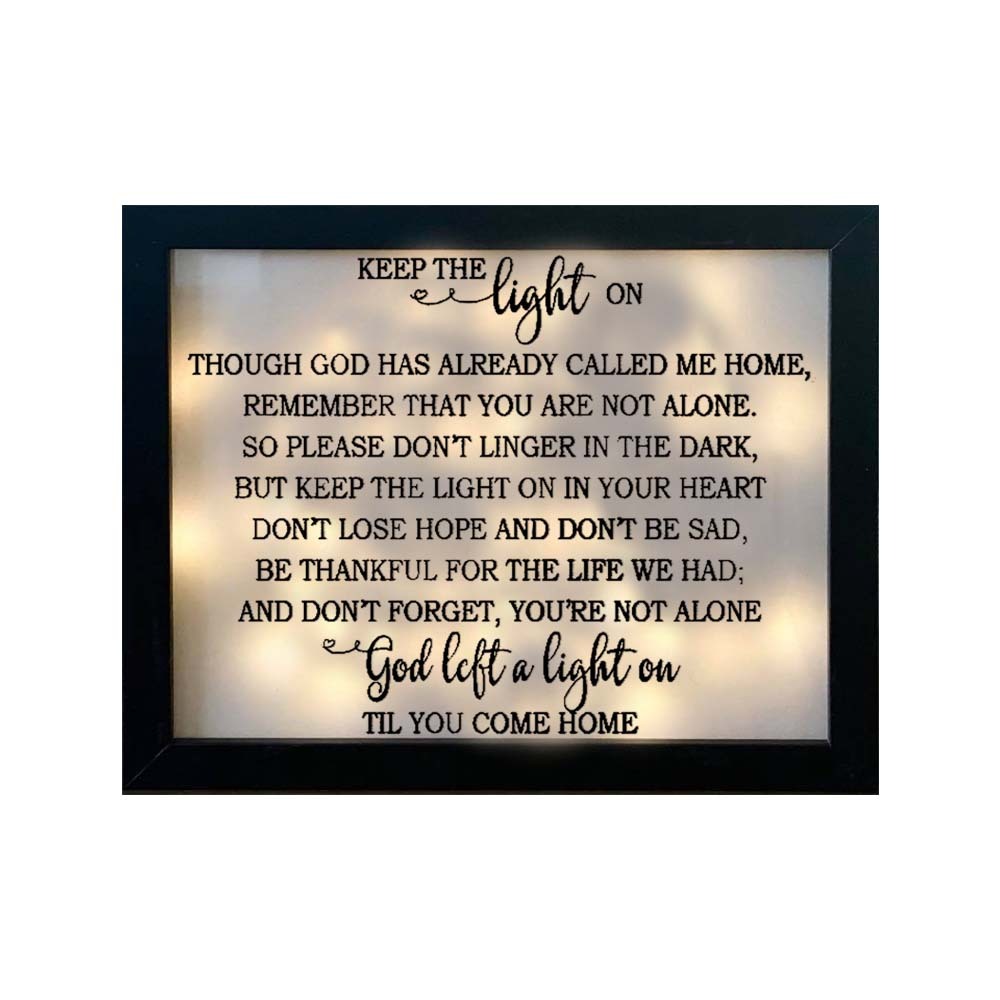 KEEP THE light ON
THOUGH GOD HAS ALREADY CALLED ME HOME,
REMEMBER THAT YOU ARE NOT ALONE.
SO PLEASE DON'T LINGER IN THE DARK,
BUT KEEP THE LIGHT ON IN YOUR HEART
DON'T LOSE HOPE AND DON'T BE SAD,
BE THANKFUL FOR THE LIFE WE HAD;
AND DON'T FORGET, YOU'RE NOT ALONE
God left a light on
TIL YOU COME HOME